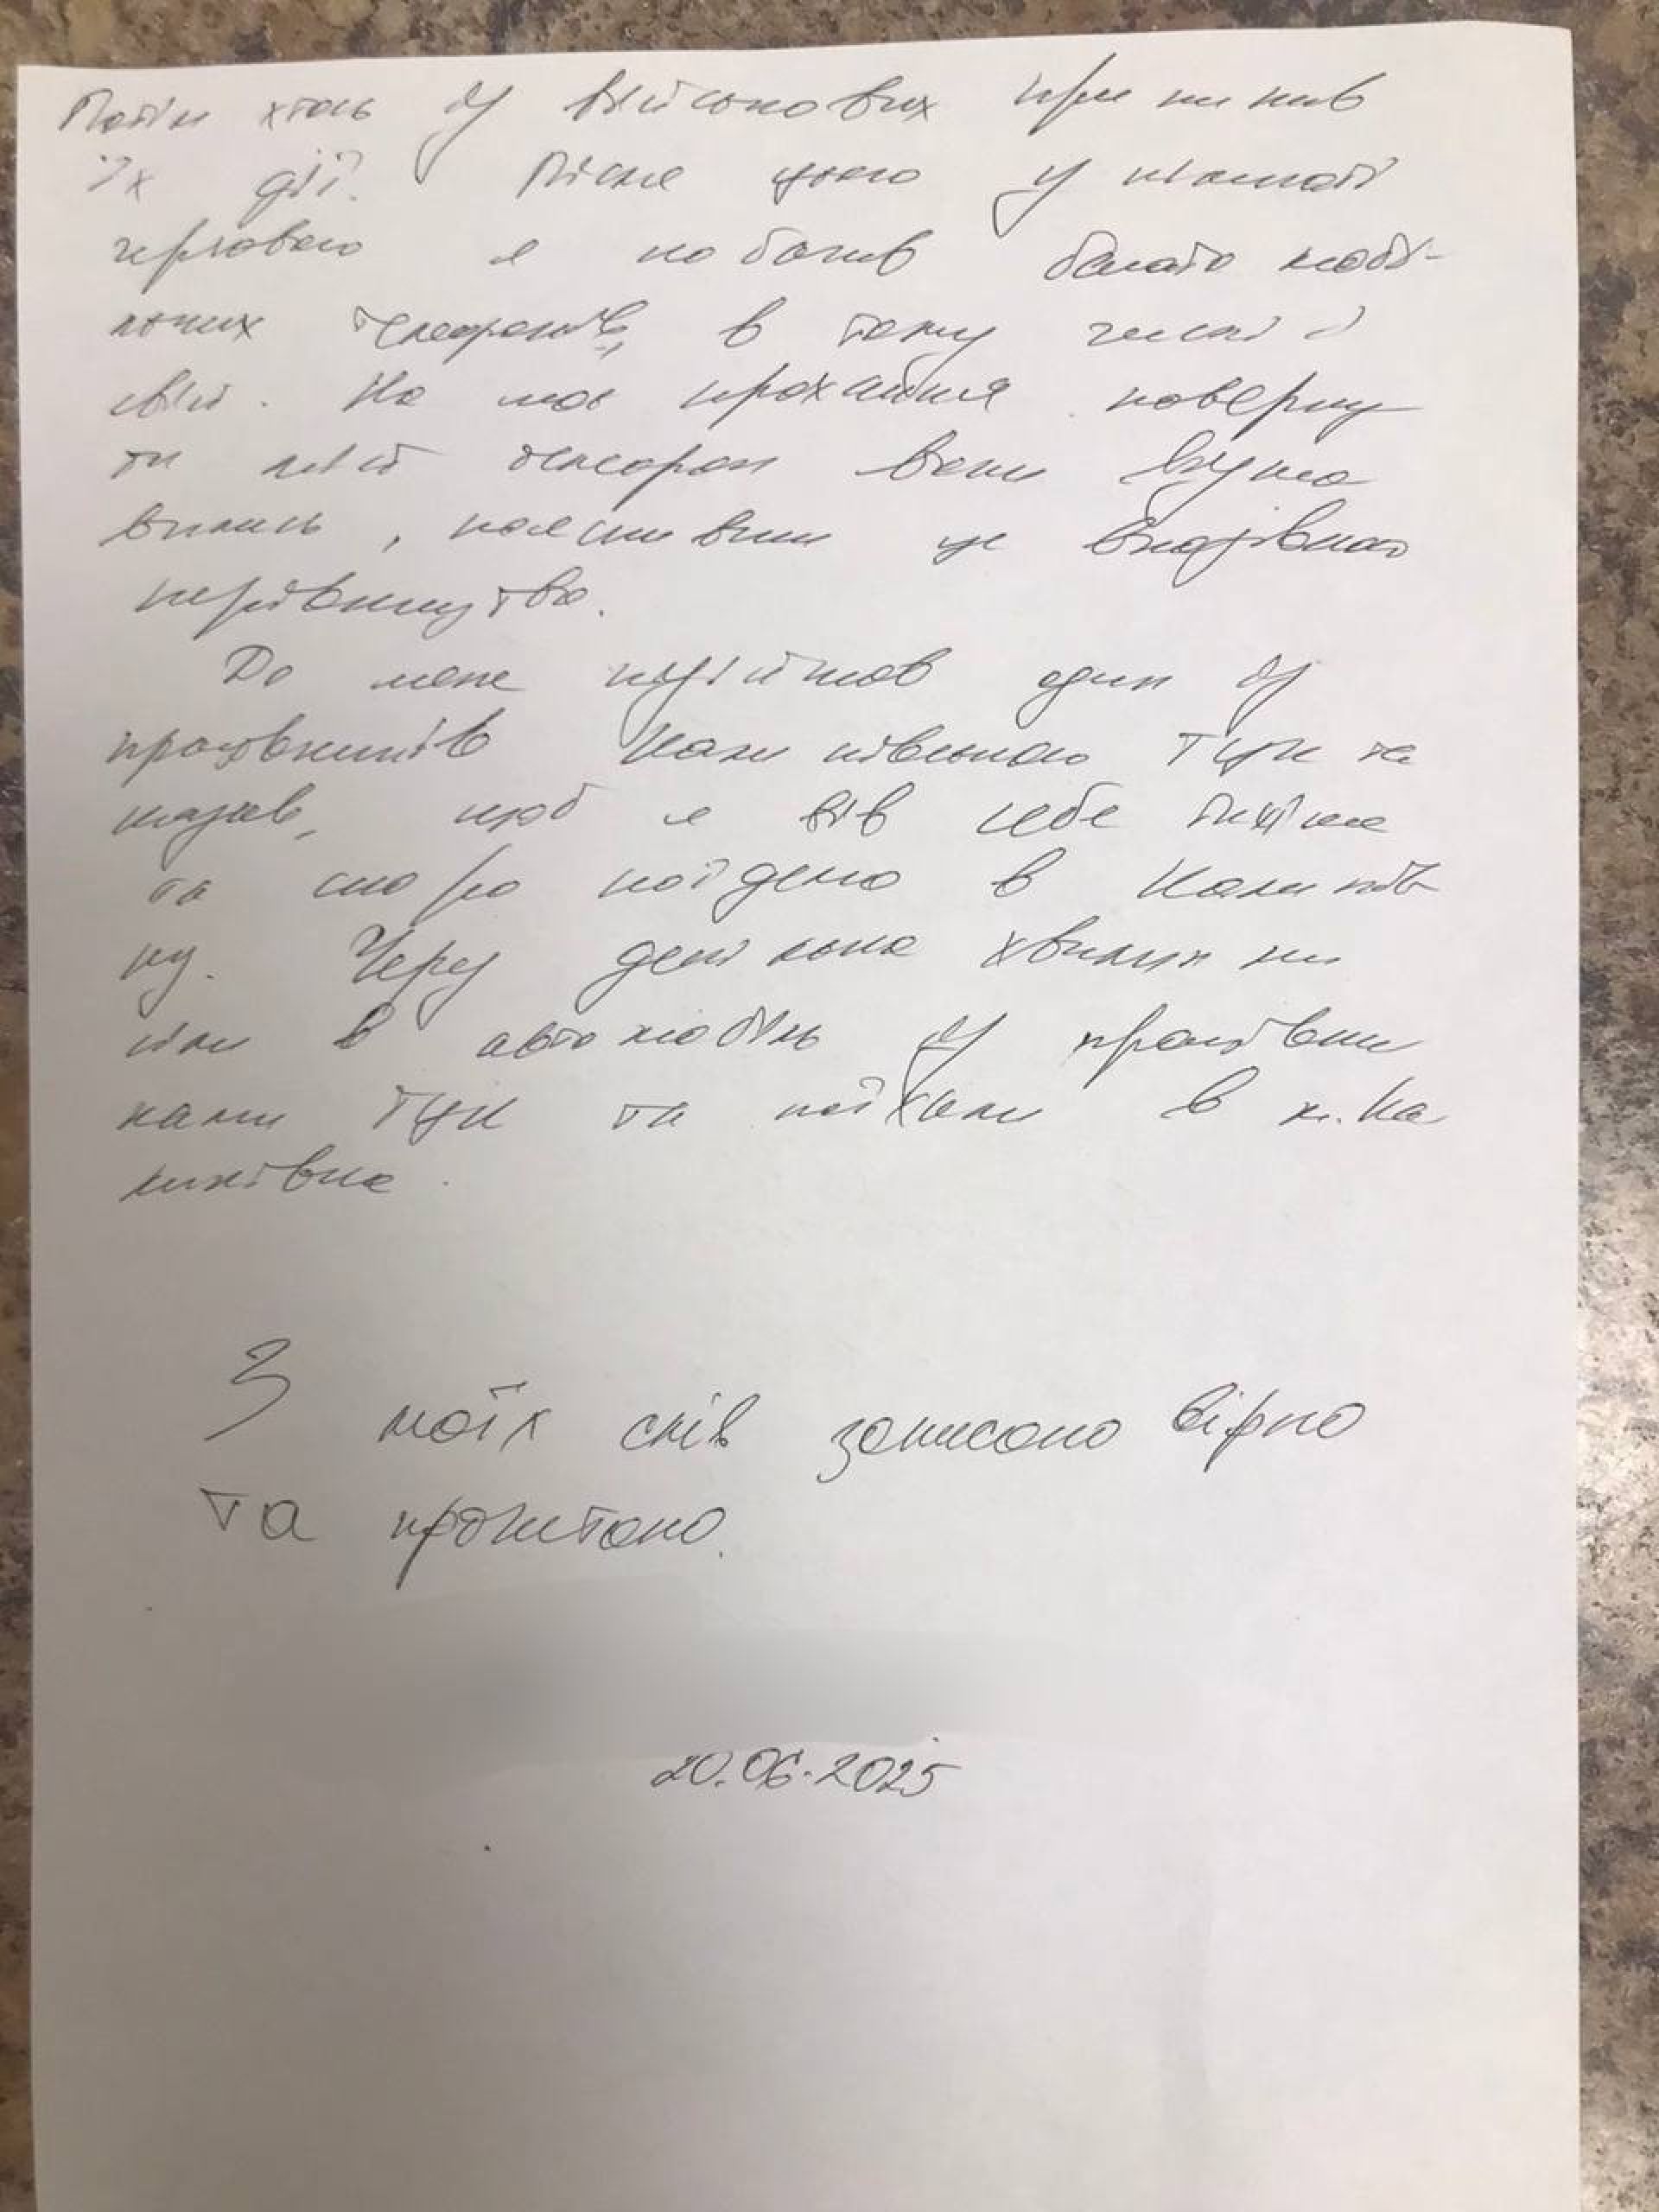 Потім хтось із військових припинив
їх дії. Після цього у кімнаті
чергового я побачив багато мобі-
льних телефонів, в тому числі і
свій. На моє прохання поверну
ти мій телефон вони відмо
вились, пояснивши це вказівкою
керівництва.
До мене підійшов один із
працівників Калинівського ТЦК та
казав, щоб я вів себе тихіше
та скоро поїдемо в Калинів
ку. Через декілька хвилин ми
сіли в автомобіль із працівни
ками ТЦК та поїхали в м. Ка
линівка.
З моїх слів записано вірно
та прочитано.
20.06.2025